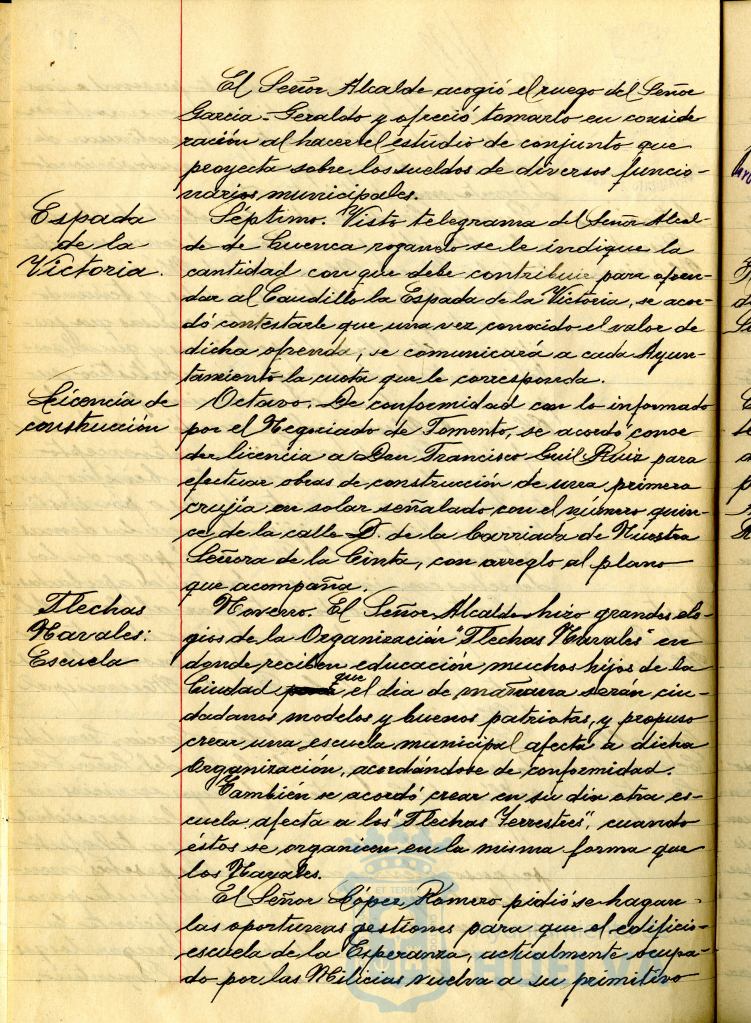 El Señor Alcalde acogió el ruego del Señor
García-Geraldo y ofreció tomarlo en conside
ración al hacer el estudio de conjunto que
proyecta sobre los sueldos de diversos funcio-
narios municipales.
Espada
de la
Victoria.
Séptimo. Visto telegrama del Señor Alcal-
de de Cuenca rogando se le indique la
cantidad con que debe contribuir para ofren-
dar al Caudillo la Espada de la Victoria, se acor-
dó contestarle que una vez conocido el valor de
dicha ofrenda, se comunicará a cada Ayun-
tamiento la cuota que le corresponda.
Licencia de
construcción
Octavo. De conformidad con lo informado
por el Negociado de Fomento, se acordó conce
der licencia a Don Francisco Guil Ruiz para
efectuar obras de construcción de una primera
crujía en solar señalado con el número quin-
ce de la calle D. de la barriada de Nuestra
Señora de la Cinta, con arreglo al plano
que acompaña.
Flechas
Navales:
Escuela
Noveno. El Señor Alcalde hizo grandes elo-
gios de la Organización "Flechas Navales" en
donde reciben educación muchos hijos de la
Ciudad que el dia de mañana serán ciu-
dadanos modelos y buenos patriotas, y propuso
crear una escuela municipal afecta a dicha
Organización, acordándose de conformidad.
También se acordó crear en su dia otra es-
cuela afecta a los "Flechas Terrestres", cuando
éstos se organicen en la misma forma que
los Navales.
El Señor López Romero pidió se hagan
las oportunas gestiones para que el edificio-
escuela de la Esperanza, actualmente ocupa-
do por las Milicias vuelva a su primitivo